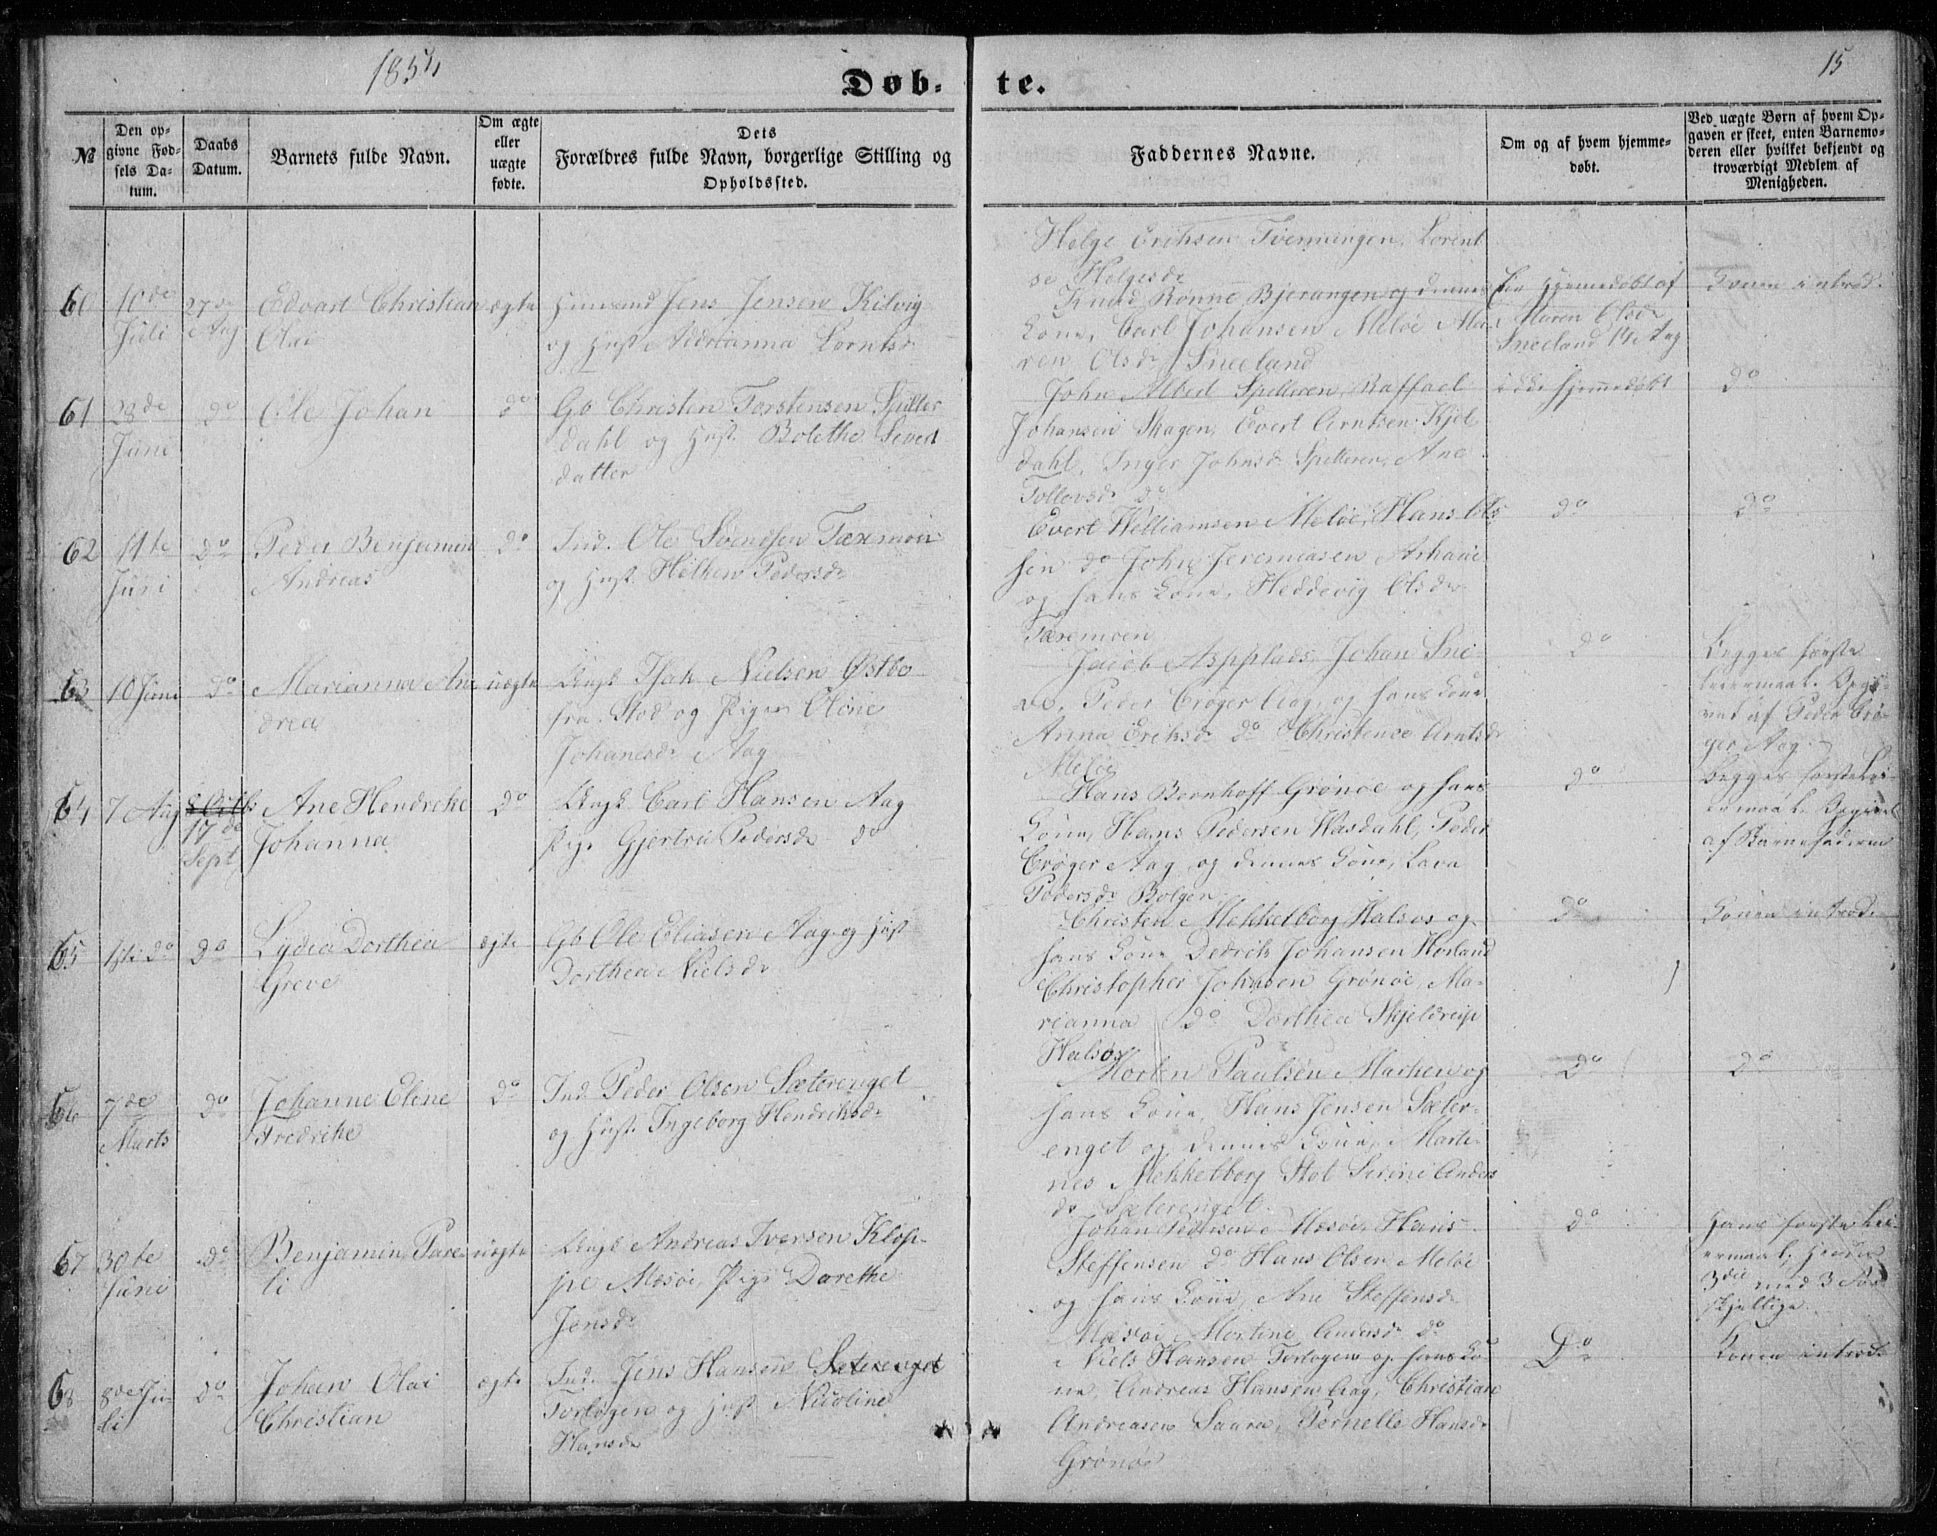 1854
15
Døb- te.
№
Den op-
givne Fød-
sels Da-
tum.
Daabs
Datum.
Barnets fulde Navn.
Om ægte
eller
uægte
fødte.
Dets
Forældres fulde Navn, borgerlige Stilling og
Opholdssted.
Faddernes Navne.
Om og af hvem hjemme-
døbt.
Ved uægte Børn af hvem Op-
gaven er skeet, enten Barnemo-
deren eller hvilket bekjendt og
troværdigt Medlem af
Menigheden.
Helge Eriksen Tverningen, Lorent
se Helgesdr
60
10de
Juli
27de
Aug
Edvart Christian
Olai
ægte
Huusmd Jens Jensen Kilvig
og Hust Adrianna Lorntsdr
Knud Rønne Bjerangen og dennes
Kone, Carl Johansen Meløe Ma-
ren Olsdr Sneeland
Er hjemmedøbt af
Maren Olsdr
Sneeland 14 Aug
Konen introd.
61
28de
June
do
Ole Johan
do
Gb Christen Torstensen Spilder
dahl og Hust. Bolethe Sivert
datter
John Albert Spelleren, Raffael
Johansen Skagen, Evert Arntsen Kjel
dahl, Inger Johnsdr Spelleren, Ane
Tollevsdr do
ikke hjemmedøbt
do
62
11te
Juni
do
Peder Benjamin
Andreas
do
Ind. Ole Svendsen Tæxmoen
og Hust. Pedersdr
Evert Williamsen Meløe, Hans Ols
sen do John Jeremiasen
og hans Kone, Heddevig Olsdr
Tæremoen
do
do
63
10 Juni
do
Marianna An-
drea
uægte
Ungk Isak Nielsen Østbo
fra Stod og Pige Oline
Johanesdr Aag
Jacob Aspplads, Johan Sne-
Peder Crøger Aag, og hans Kone
Anna Eriksdr do Christence Arntsdr
Meløe
do
Begges første
Leiermaal. Opgi-
vet af Peder Crø-
ger Aag.
64
7 Aug
17de
Sept
Ane Hendrike
Johanna
do
Ungk. Carl Hansen Aag
Pige Gjertru Pedersdr do
Hans Bernhoff Grønøe og hans
Kone, Hans Pedersen Vasdahl, Peder
Crøger Aag og dennes Kone, Lava
Pedersdr Bolgen
do
Begges første Lei-
ermaal. Opgivet
af Barnefaderen
65
1ste do
do
Lydia Dorthea
Greve
ægte
Gb Ole Eliasen Aag og Hust
Dorthea Nielsdr
Christen Mekkelborg Halsøs og
hans Kone Dedrik Johansen Horland
Christopher Johnsen Grønøe, Ma-
rianna do Dorthea Skjeldreip
Halsøs
do
Konen introd.
66
7de
Marts
do
Johanne Elene
Fredrike
do
Ind. Peder Olsen Sæterenget
og Hust. Ingeborg Hendriksdr
Morten Paulsen Marken og
hans Kone, Hans Jensen Sæter-
enget og dennes Kone, Marti-
nes Mekkelborg Stot Serine Anders
dr Sæterenget
do
do
67
30te
Juni
do
Benjamin Pare-
li
uægte
Ungk Andreas Iversen Klop-
pe Mesøe, Pige Dorethe
Jensdr
Johan Pedersen Mesøe, Hans
Steffensen do Hans Olsen Meløe
og hans Kone, Ane Steffensdr
Mesøe, Mortine Andersdr do
do
Hans første Lei-
ermaal, hendes
3die med 3 for
skjellige
68
8de Ju-
li
do
Johan Olai
Christian
ægte
Ind. Jens Hansen Sæterenget
Torlogen og Hust Nicoline
Hansdr
Niels Hansen Torlogen og hans Ko-
ne, Andreas Hansen Aag, Christian
Andreasen Saura, Pernelle Hansdr
Grønøe
Do
Konen introd.